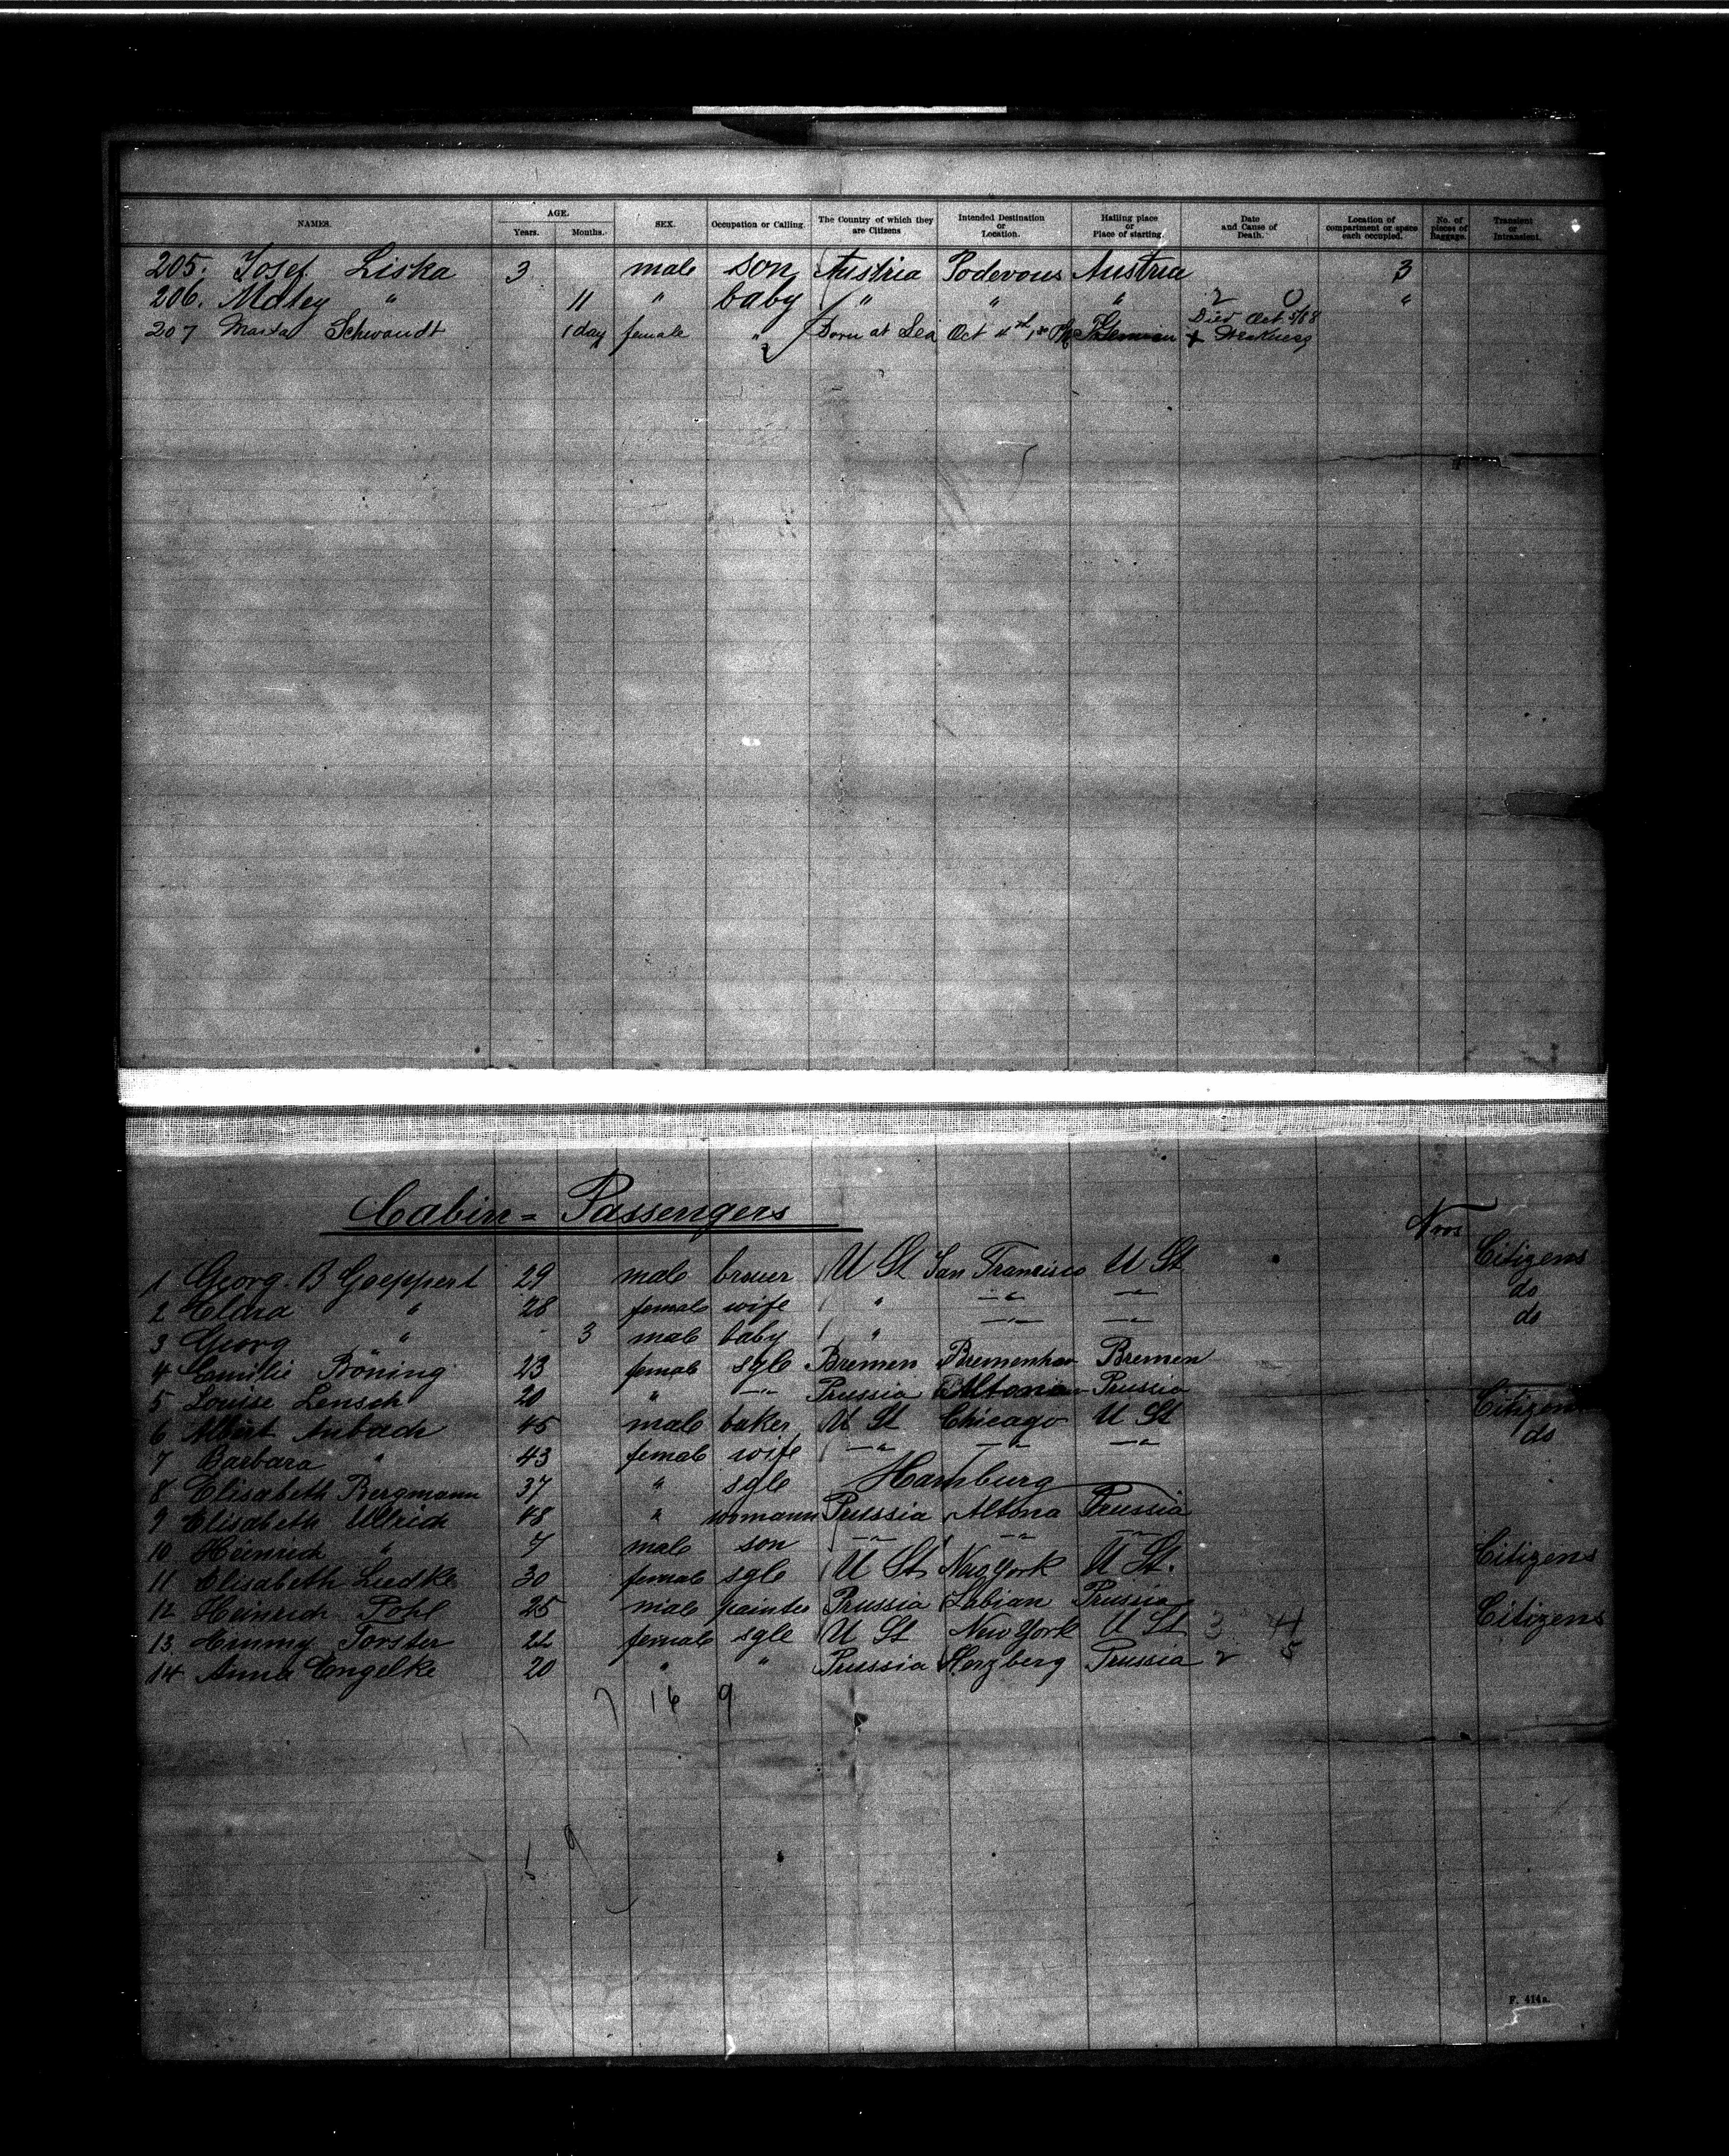 NAMES. AGE. Years. Months. SEX. Occupation or Calling. The Country of which they are Citizens Intended Destination or Location. Hailing place or Place of starting. Date and Cause of Death. Location of compartment or space each occupied. No. of pieces of Baggage. Transient or Intransient.
205. Josef Liska 3 male son Austria Podevous Austria 3
206. Matey " 11 " baby " " " 2 0 "
207 Schwandt 1 day female " Born at Sea Oct 4th Died Oct 5/88 Weakness
Cabin = Passengers
1 Georg B Goeppert 29 male brewer U St San Francisco U St Citizens
2 Clara " 28 female wife " —"— —"— do
3 Georg " 3 male baby " —"— —"— do
4 Emilie Böning 23 female sgle Bremen Bremenhav Bremen
5 Louise Lensch 20 " —"— Prussia Altona Prussia
6 Albert Aubach 45 male baker U St Chicago U St Citizens
7 Barbara " 43 female wife —"— —"— —"— do
8 Elisabeth Bergmann 37 " sgle Hamburg
9 Elisabeth Ullrich 48 " womann Prussia Altona Prussia
10 Heinrich " 7 male son —"— —"— —"—
11 Elisabeth Luedke 30 female sgle U St New York U St. Citizens
12 Heinrich Pohl 25 male painter Prussia Labian Prussia
13 Emmy Forster 22 female sgle U St New York U St 3 4 Citizens
14 Anna Engelke 20 " " Prussia Herzberg Prussia 2 5
7 16 9
F. 414a.